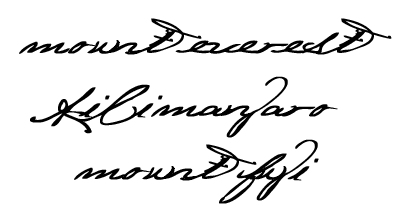 mount everest
Kilimanjaro
mount fuji